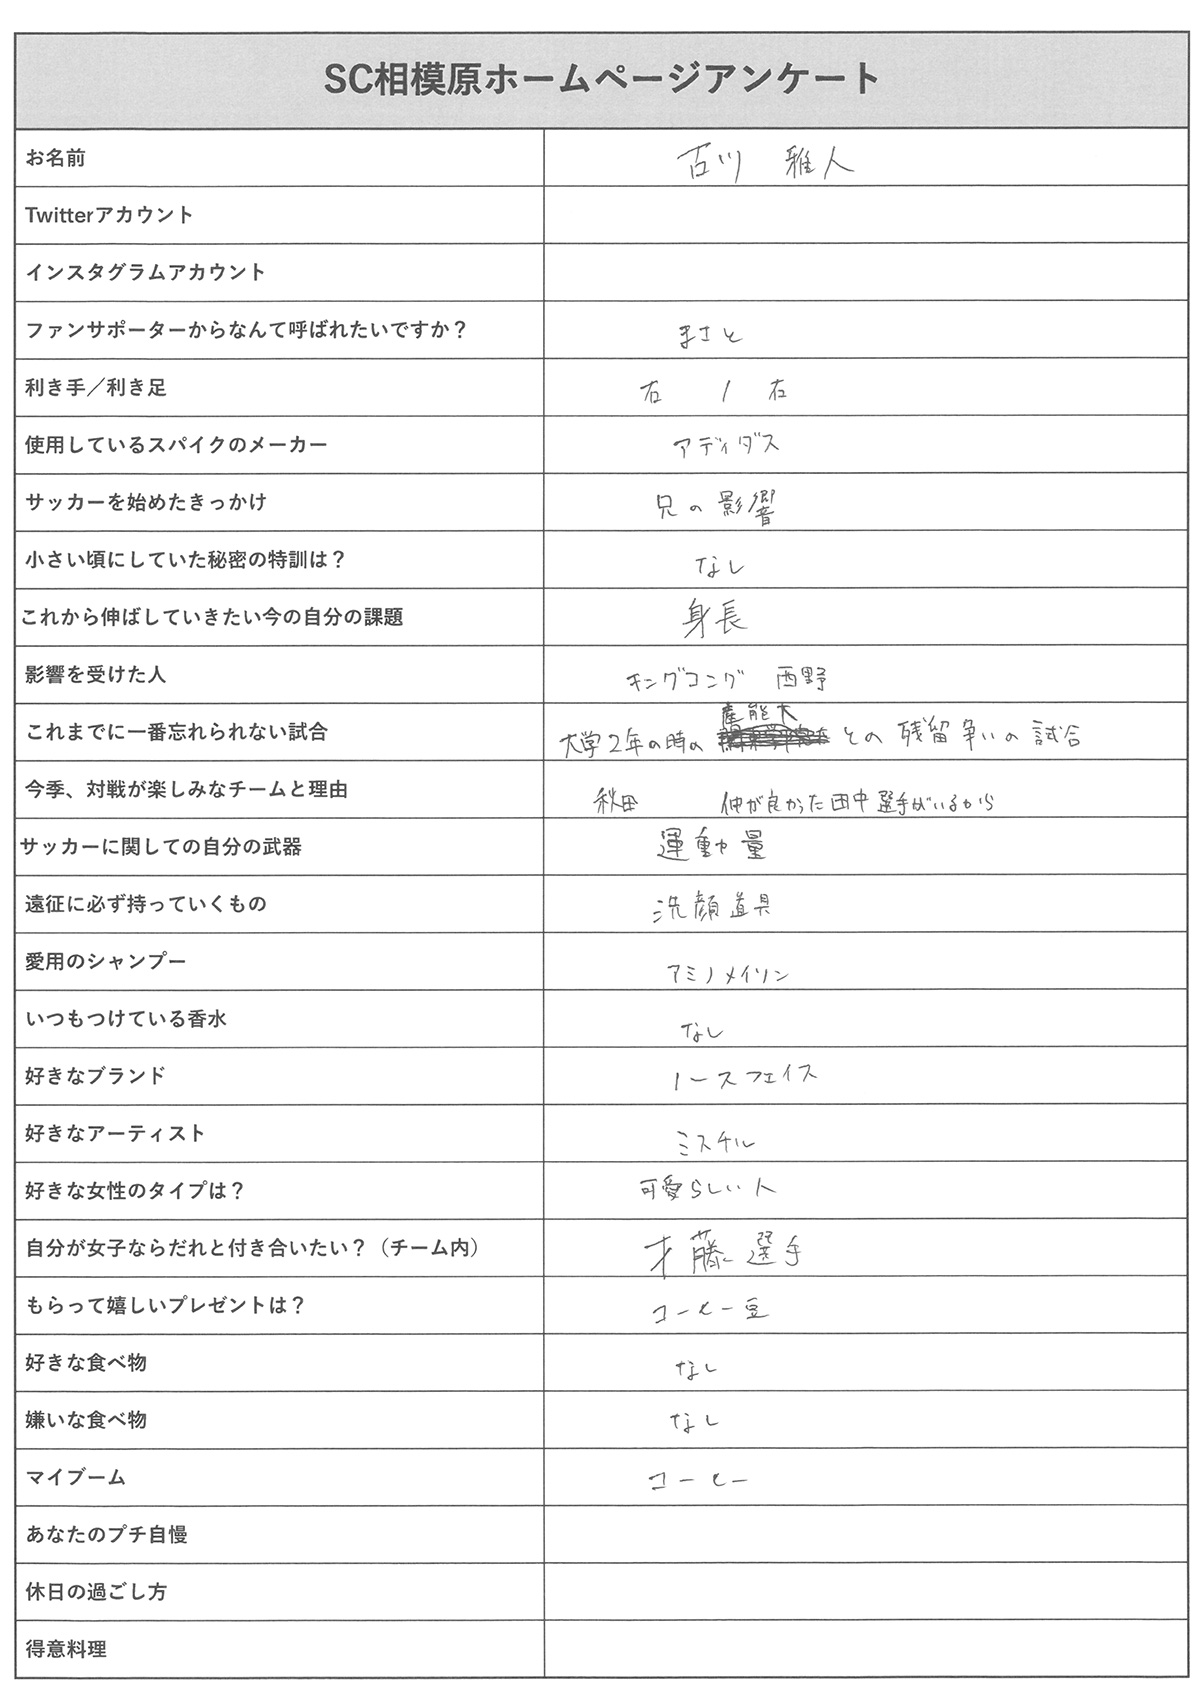 SC相模原ホームページアンケート
お名前 古川 雅人
Twitterアカウント
インスタグラムアカウント
ファンサポーターからなんて呼ばれたいですか？ まさと
利き手／利き足 右 / 右
使用しているスパイクのメーカー アディダス
サッカーを始めたきっかけ 兄の影響
小さい頃にしていた秘密の特訓は？ なし
これから伸ばしていきたい今の自分の課題 身長
影響を受けた人 キングコング 西野
産能大
これまでに一番忘れられない試合 大学2年の時の との残留争いの試合
今季、対戦が楽しみなチームと理由 秋田 仲が良かった田中選手がいるから
サッカーに関しての自分の武器 運動量
遠征に必ず持っていくもの 洗顔道具
愛用のシャンプー アミノメイソン
いつもつけている香水 なし
好きなブランド ノースフェイス
好きなアーティスト ミスチル
好きな女性のタイプは？ 可愛らしい人
自分が女子ならだれと付き合いたい？（チーム内） 才藤選手
もらって嬉しいプレゼントは？ コーヒー豆
好きな食べ物 なし
嫌いな食べ物 なし
マイブーム コーヒー
あなたのプチ自慢
休日の過ごし方
得意料理